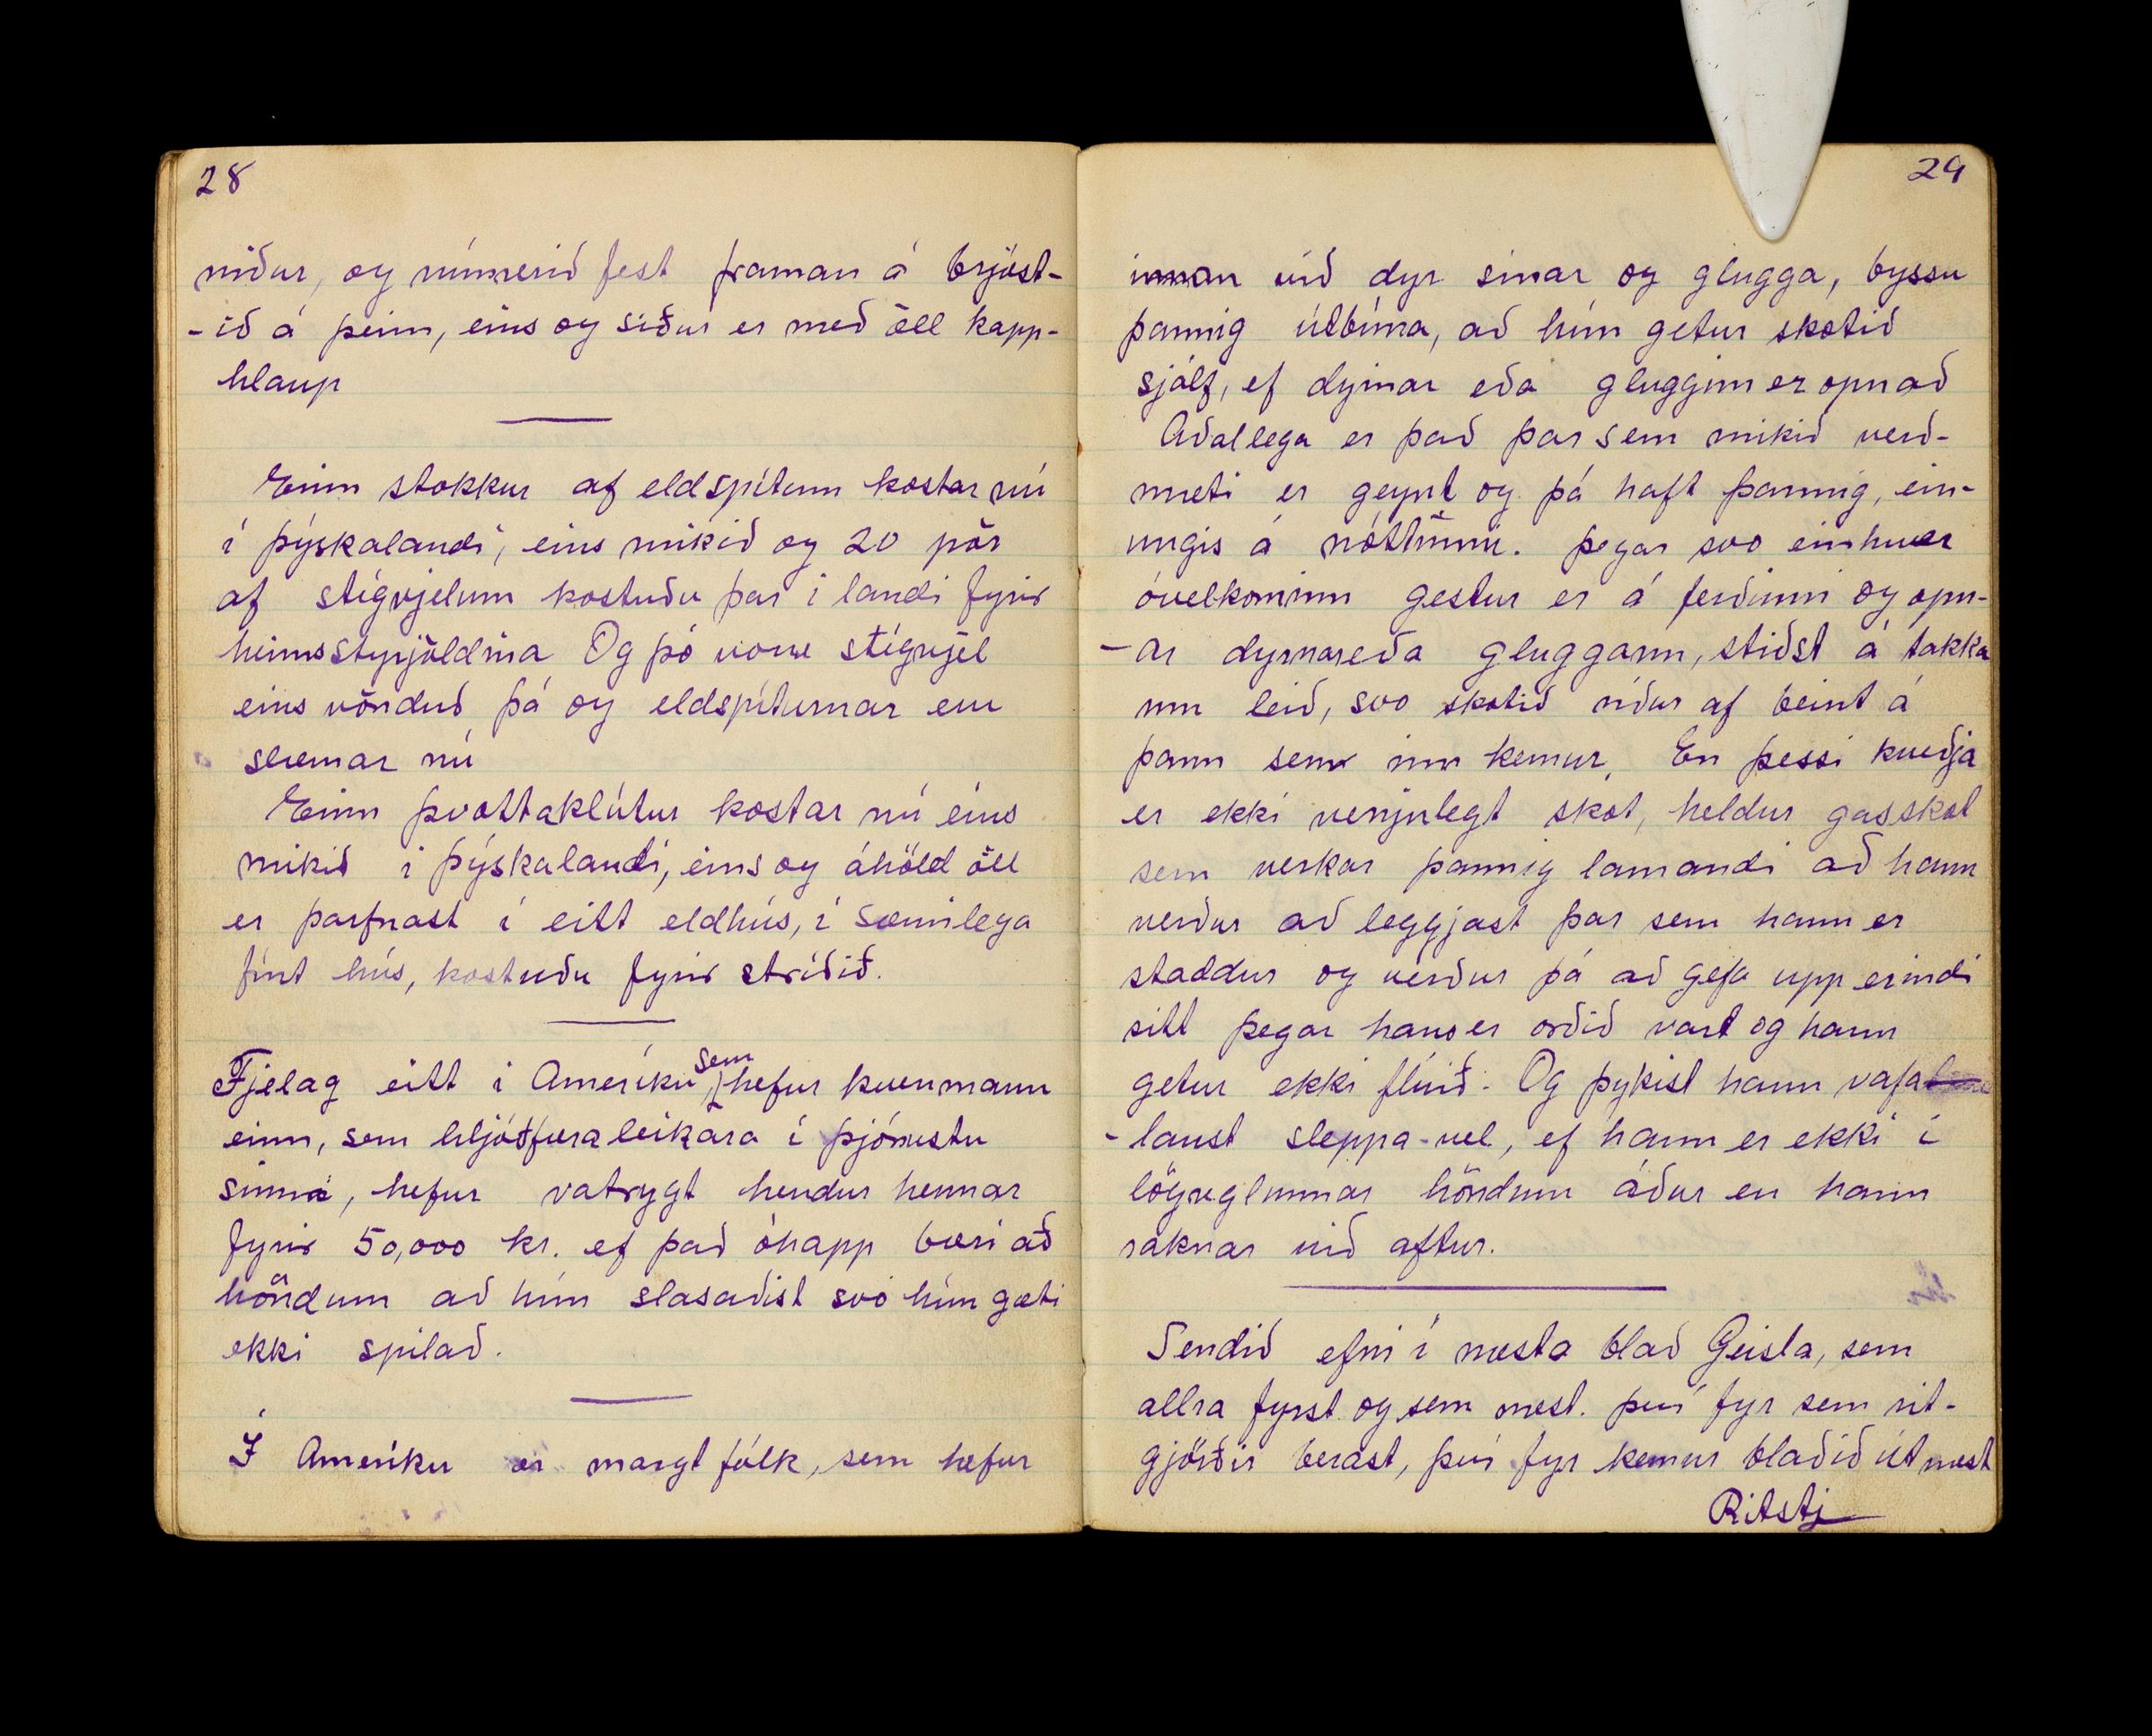 28
niður, og númerið fest framan á brjóst-
-ið á þeim, eins og siður er með öll kapp-
hlaup
Einn stokkur af eldspítum kostar nú
í þýskalandi, eins mikið og 20 pör
af stígvjelum kostuðu þar i landi fyrir
heimsstyrjöldina Og þó voru stígvjel
eins vönduð þá og eldspíturnar eru
slæmar nú
Einn þvottaklútur kostar nú eins
mikið i þýskalandi, eins og áhöld öll
er þarfnast í eitt eldhús, í sæmilega
fínt hús, kostuðu fyrir stríðið.
Fjelag eitt i Ameríku, sem hefur kvenmann
einn, sem hljóðfæraleikara í þjónustu
sinni, hefur vatrygt hendur hennar
fyrir 50,000 kr. ef það óhapp bæri að
höndum að hún slasaðist svo hún gæti
ekki spilað.
Í Ameríku er margt fólk, sem hefur
29
innan við dyr sinar og glugga, byssu
þannig útbúna, að hún getur skotið
sjálf, ef dyrnar eða gluggin er opnað
Aðallega er það þar sem mikið verð-
mæti er geymt og þá haft þannig, ein-
ungis á nóttunni. þegar svo einhver
óvelkominn gestur er á ferðinni og opn-
-ar dyrnar eða gluggann, stiðst á takka
um leið, svo skotið ríður af beint á
þann sem inn kemur, En þessi kveðja
er ekki venjulegt skot, heldur gasskot
sem verkar þannig lamandi að hann
verður að leggjast þar sem hann er
staddur og verður þá að gefa upp erindi
sitt þegar hans er orðið vart og hann
getur ekki flúið. Og þykist hann vafa
-laust sleppa vel, ef hann er ekki í
lögreglunnar höndum áður en hann
raknar við aftur.
Sendið efni í næsta blað Geisla, sem
allra fyrst og sem mest. því fyr sem rit-
gjörðir berast, því fyr kemur blaðið út næst
Ritstj